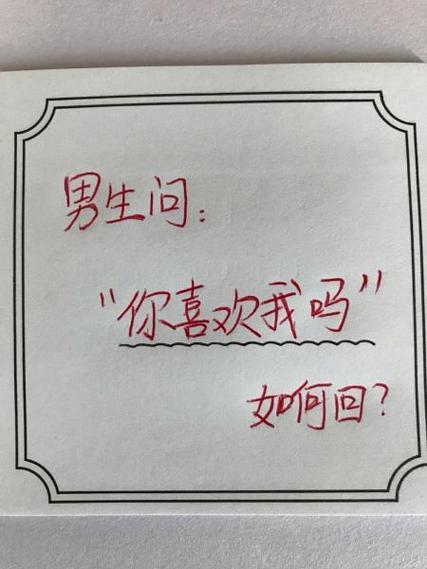 男生问：
“你喜欢我吗”
如何回？